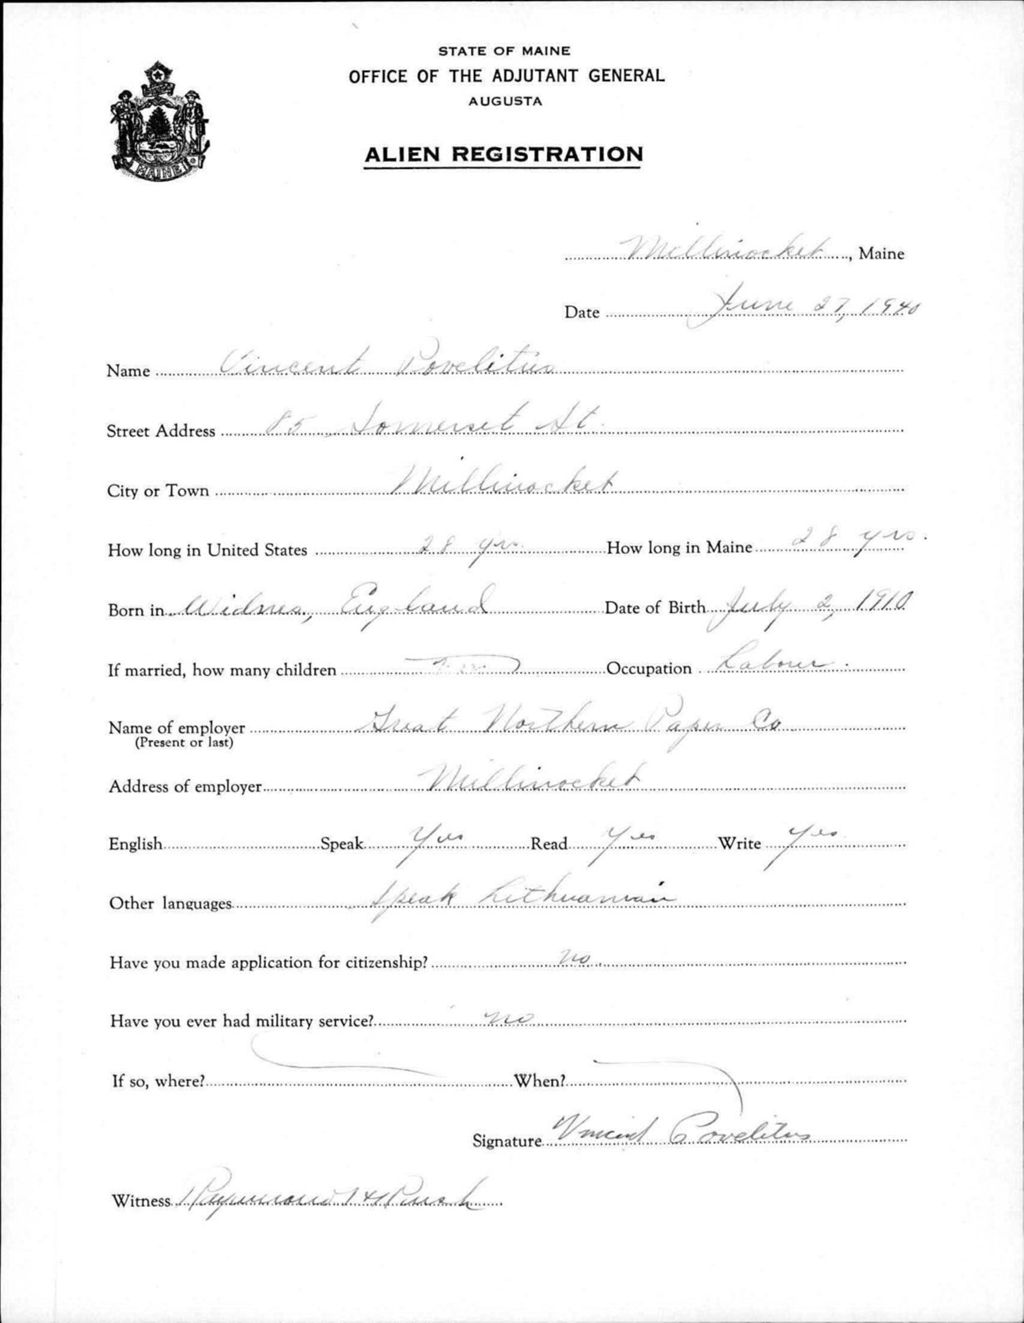 STATE OF MAINE
OFFICE OF THE ADJUTANT GENERAL
AUGUSTA
ALIEN REGISTRATION
MAINE
Millinocket, Maine
Date June 27, 1940
Name Vincent Povelitus
Street Address 85 Somerset St.
City or Town Millinocket
How long in United States 28 yrs. How long in Maine 28 yrs.
Born in Widnes, England Date of Birth July 2, 1910
If married, how many children Occupation Labour.
Name of employer Great Northern Paper Co
(Present or last)
Address of employer Millinocket
English Speak Yes Read Yes Write Yes
Other languages Speak Lithuanian
Have you made application for citizenship? No
Have you ever had military service? no
If so, where? When?
Signature Vincent Povelitus
Witness Raymond H Rush